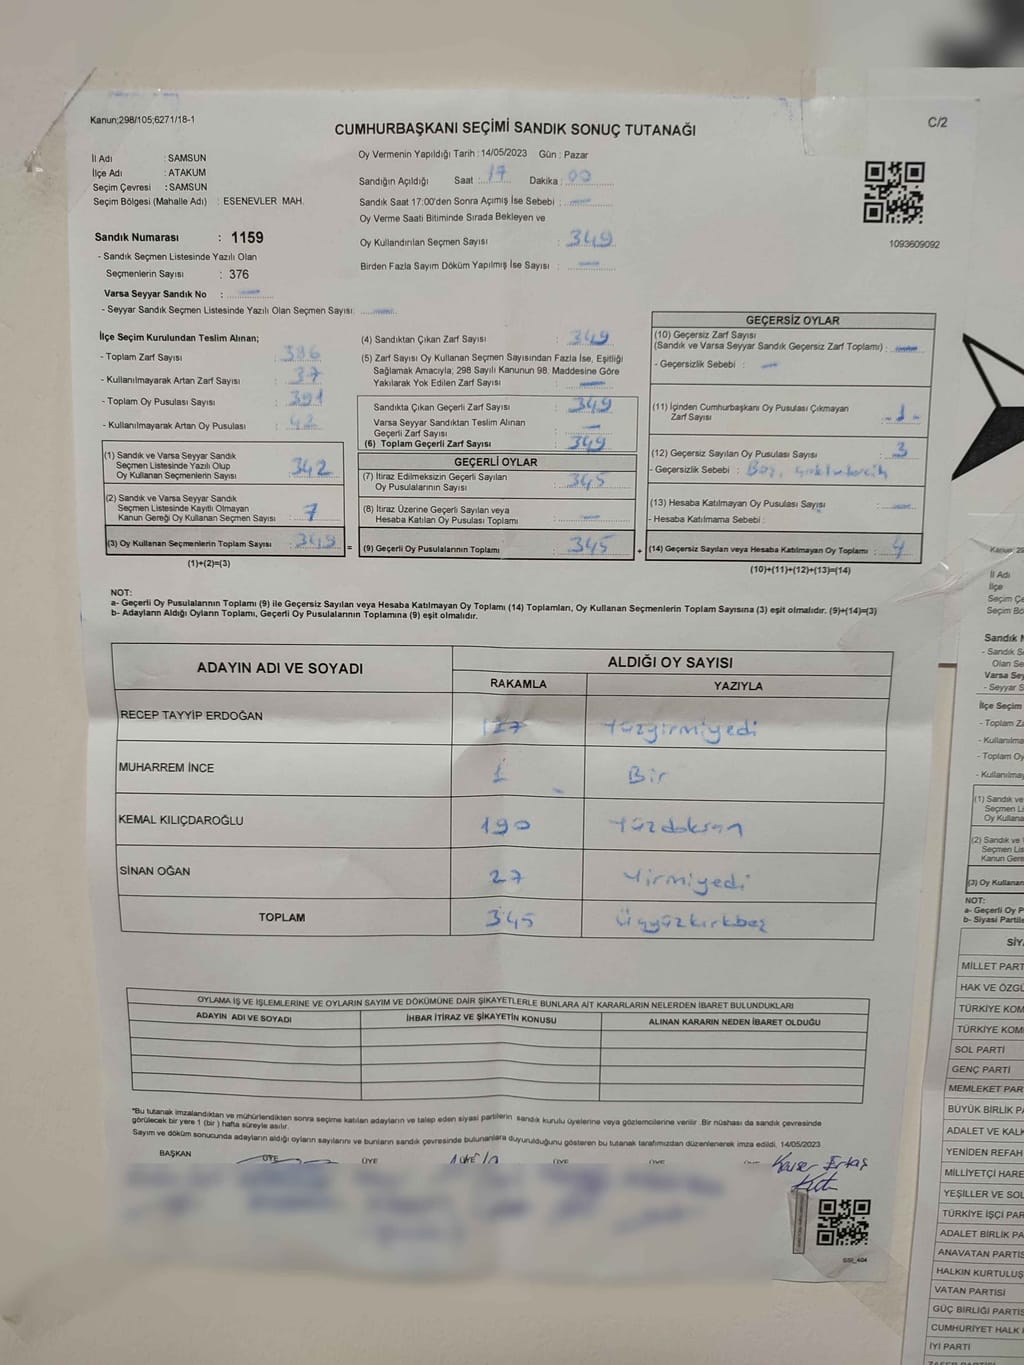 Kanun;298/105;6271/18-1
C/2
CUMHURBAŞKANI SEÇİMİ SANDIK SONUÇ TUTANAĞI
İl Adı : SAMSUN
İlçe Adı : ATAKUM
Seçim Çevresi : SAMSUN
Seçim Bölgesi (Mahalle Adı) : ESENEVLER MAH.
Oy Vermenin Yapıldığı Tarih : 14/05/2023 Gün : Pazar
Sandığın Açıldığı Saat : 17 Dakika : 00
Sandık Saat 17:00'den Sonra Açımış İse Sebebi : —
Oy Verme Saati Bitiminde Sırada Bekleyen ve
Oy Kullandırılan Seçmen Sayısı : 349
Birden Fazla Sayım Döküm Yapılmış İse Sayısı : —
1093609092
Sandık Numarası : 1159
- Sandık Seçmen Listesinde Yazılı Olan
Seçmenlerin Sayısı : 376
Varsa Seyyar Sandık No : —
- Seyyar Sandık Seçmen Listesinde Yazılı Olan Seçmen Sayısı: —
İlçe Seçim Kurulundan Teslim Alınan;
- Toplam Zarf Sayısı : 386
- Kullanılmayarak Artan Zarf Sayısı : 37
- Toplam Oy Pusulası Sayısı : 391
- Kullanılmayarak Artan Oy Pusulası : 42
(1) Sandık ve Varsa Seyyar Sandık
Seçmen Listesinde Yazılı Olup
Oy Kullanan Seçmenlerin Sayısı : 342
(2) Sandık ve Varsa Seyyar Sandık
Seçmen Listesinde Kayıtlı Olmayan
Kanun Gereği Oy Kullanan Seçmen Sayısı : 7
(3) Oy Kullanan Seçmenlerin Toplam Sayısı : 349
(1)+(2)=(3)
=
(4) Sandıktan Çıkan Zarf Sayısı : 349
(5) Zarf Sayısı Oy Kullanan Seçmen Sayısından Fazla İse, Eşitliği
Sağlamak Amacıyla; 298 Sayılı Kanunun 98. Maddesine Göre
Yakılarak Yok Edilen Zarf Sayısı : —
Sandıkta Çıkan Geçerli Zarf Sayısı : 349
Varsa Seyyar Sandıktan Teslim Alınan
Geçerli Zarf Sayısı : —
(6) Toplam Geçerli Zarf Sayısı : 349
GEÇERLİ OYLAR
(7) İtiraz Edilmeksizin Geçerli Sayılan
Oy Pusulalarının Sayısı : 345
(8) İtiraz Üzerine Geçerli Sayılan veya
Hesaba Katılan Oy Pusulası Toplamı : —
(9) Geçerli Oy Pusulalarının Toplamı : 345
+
GEÇERSİZ OYLAR
(10) Geçersiz Zarf Sayısı
(Sandık ve Varsa Seyyar Sandık Geçersiz Zarf Toplamı) : —
- Geçersizlik Sebebi : —
(11) İçinden Cumhurbaşkanı Oy Pusulası Çıkmayan
Zarf Sayısı : -1-
(12) Geçersiz Sayılan Oy Pusulası Sayısı : 3
- Geçersizlik Sebebi : Boş,
(13) Hesaba Katılmayan Oy Pusulası Sayısı : —
- Hesaba Katılmama Sebebi :
(14) Geçersiz Sayılan veya Hesaba Katılmayan Oy Toplamı : 4
(10)+(11)+(12)+(13)=(14)
NOT:
a- Geçerli Oy Pusulalarının Toplamı (9) ile Geçersiz Sayılan veya Hesaba Katılmayan Oy Toplamı (14) Toplamları, Oy Kullanan Seçmenlerin Toplam Sayısına (3) eşit olmalıdır. (9)+(14)=(3)
b- Adayların Aldığı Oyların Toplamı, Geçerli Oy Pusulalarının Toplamına (9) eşit olmalıdır.
ADAYIN ADI VE SOYADI
ALDIĞI OY SAYISI
RAKAMLA YAZIYLA
RECEP TAYYİP ERDOĞAN 127 Yüzyirmiyedi
MUHARREM İNCE 1 Bir
KEMAL KILIÇDAROĞLU 190 Yüzdoksan
SİNAN OĞAN 27 Yirmiyedi
TOPLAM 345 Üçyüzkırkbeş
OYLAMA İŞ VE İŞLEMLERİNE VE OYLARIN SAYIM VE DÖKÜMÜNE DAİR ŞİKAYETLERLE BUNLARA AİT KARARLARIN NELERDEN İBARET BULUNDUKLARI
ADAYIN ADI VE SOYADI İHBAR İTİRAZ VE ŞİKAYETİN KONUSU ALINAN KARARIN NEDEN İBARET OLDUĞU
*Bu tutanak imzalandıktan ve mühürlendikten sonra seçime katılan adayların ve talep eden siyasi partilerin sandık kurulu üyelerine veya gözlemcilerine verilir. Bir nüshası da sandık çevresinde
görülecek bir yere 1 (bir) hafta süreyle asılır.
Sayım ve döküm sonucunda adayların aldığı oyların sayılarını ve bunların sandık çevresinde bulunanlara duyurulduğunu gösteren bu tutanak tarafımızdan düzenlenerek imza edildi. 14/05/2023
BAŞKAN ÜYE ÜYE ÜYE ÜYE
SSI_404
Kanun; 29
İl Adı
İlçe
Seçim Çe
Seçim Bö
Sandık N
- Sandık Se
Olan Se
Varsa Sey
- Seyyar S
İlçe Seçim
- Toplam Za
- Kullanılma
- Toplam Oy
- Kullanılmay
(1) Sandık ve
Seçmen Li
Oy Kullana
(2) Sandık ve
Seçmen Lis
Kanun Gere
(3) Oy Kullanan
NOT:
a- Geçerli Oy P
b- Siyasi Partile
SİYA
MİLLET PART
HAK VE ÖZGÜ
TÜRKİYE KOM
TÜRKİYE KOMÜ
SOL PARTİ
GENÇ PARTİ
MEMLEKET PAR
BÜYÜK BİRLİK P
ADALET VE KALK
YENİDEN REFAH
MİLLİYETÇİ HARE
YEŞİLLER VE SOL
TÜRKİYE İŞÇİ PAR
ADALET BİRLİK PA
ANAVATAN PARTİS
HALKIN KURTULUŞ
VATAN PARTİSİ
GÜÇ BİRLİĞİ PARTİS
CUMHURİYET HALK
İYİ PARTİ